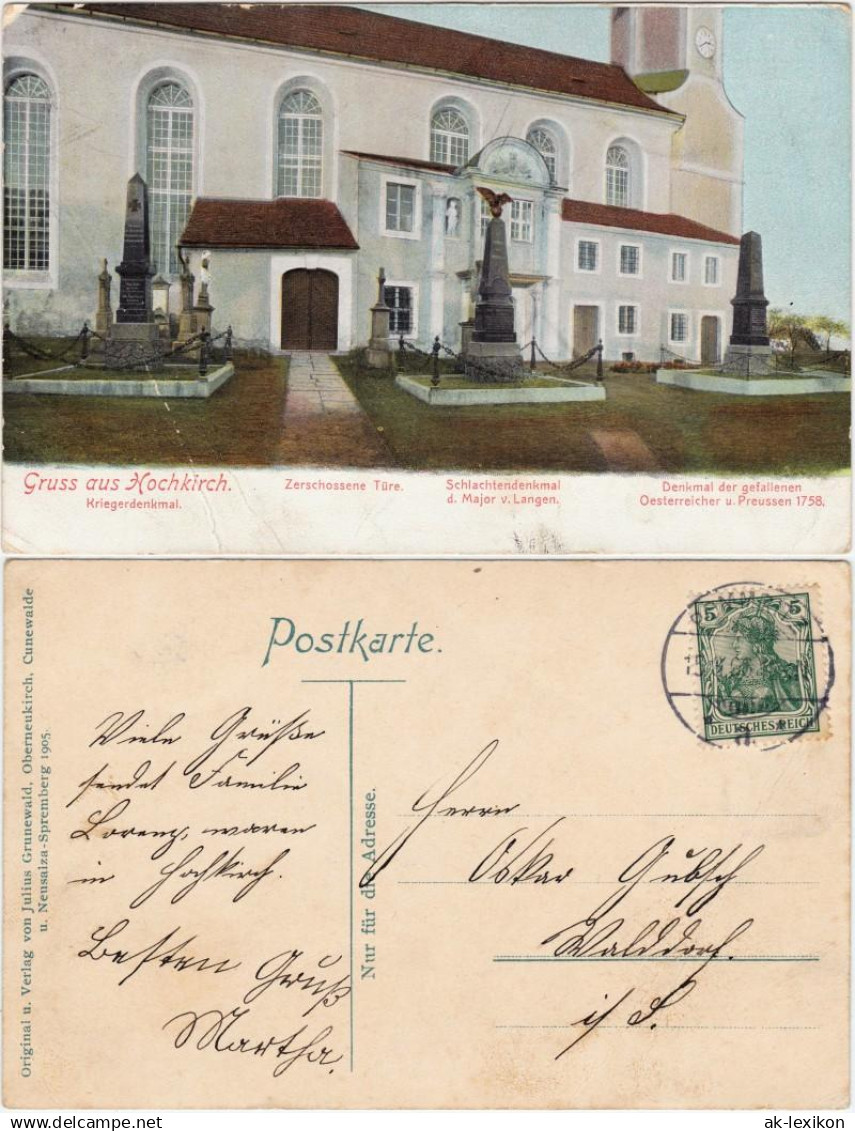 Gruss aus Hochkirch.
Kriegerdenkmal.
Zerschossene Türe.
Schlachtendenkmal
d. Major v. Langen.
Denkmal der gefallenen
Oesterreicher u. Preussen 1758.
Original u. Verlag von Julius Grunewald, Oberneukirch, Cunewalde
u. Neusalza-Spremberg 1905.
Postkarte.
5 5
DEUTSCHES REICH
Viele Grüße
sendet Familie
Lorenz, waren
in Hochkirch.
Besten Gruß
Martha.
Nur für die Adresse.
Herrn
Oskar Gubsch
Walddorf.
i/S.
delcampe.net
ak-lexikon